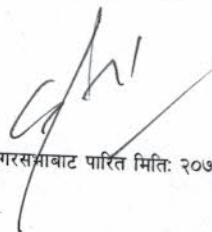 गरसभाबाट पारित मितिः २०७